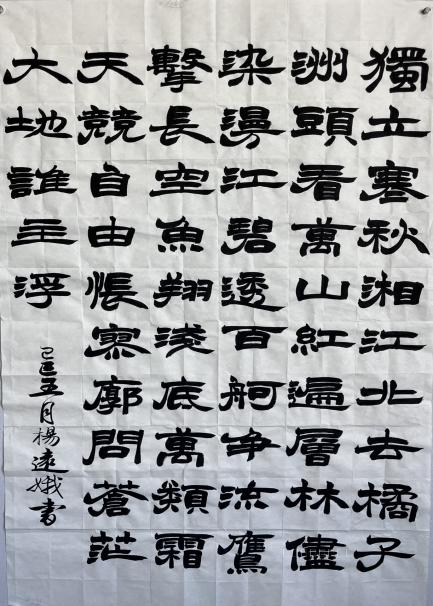 獨立寒秋湘江北去橘子
洲頭看萬山紅遍層林儘
染漫江碧透百舸争流鷹
擊長空魚翔淺底萬類霜
天競自由悵寥廓問蒼茫
大地誰主浮
己丑五月楊遠娥書